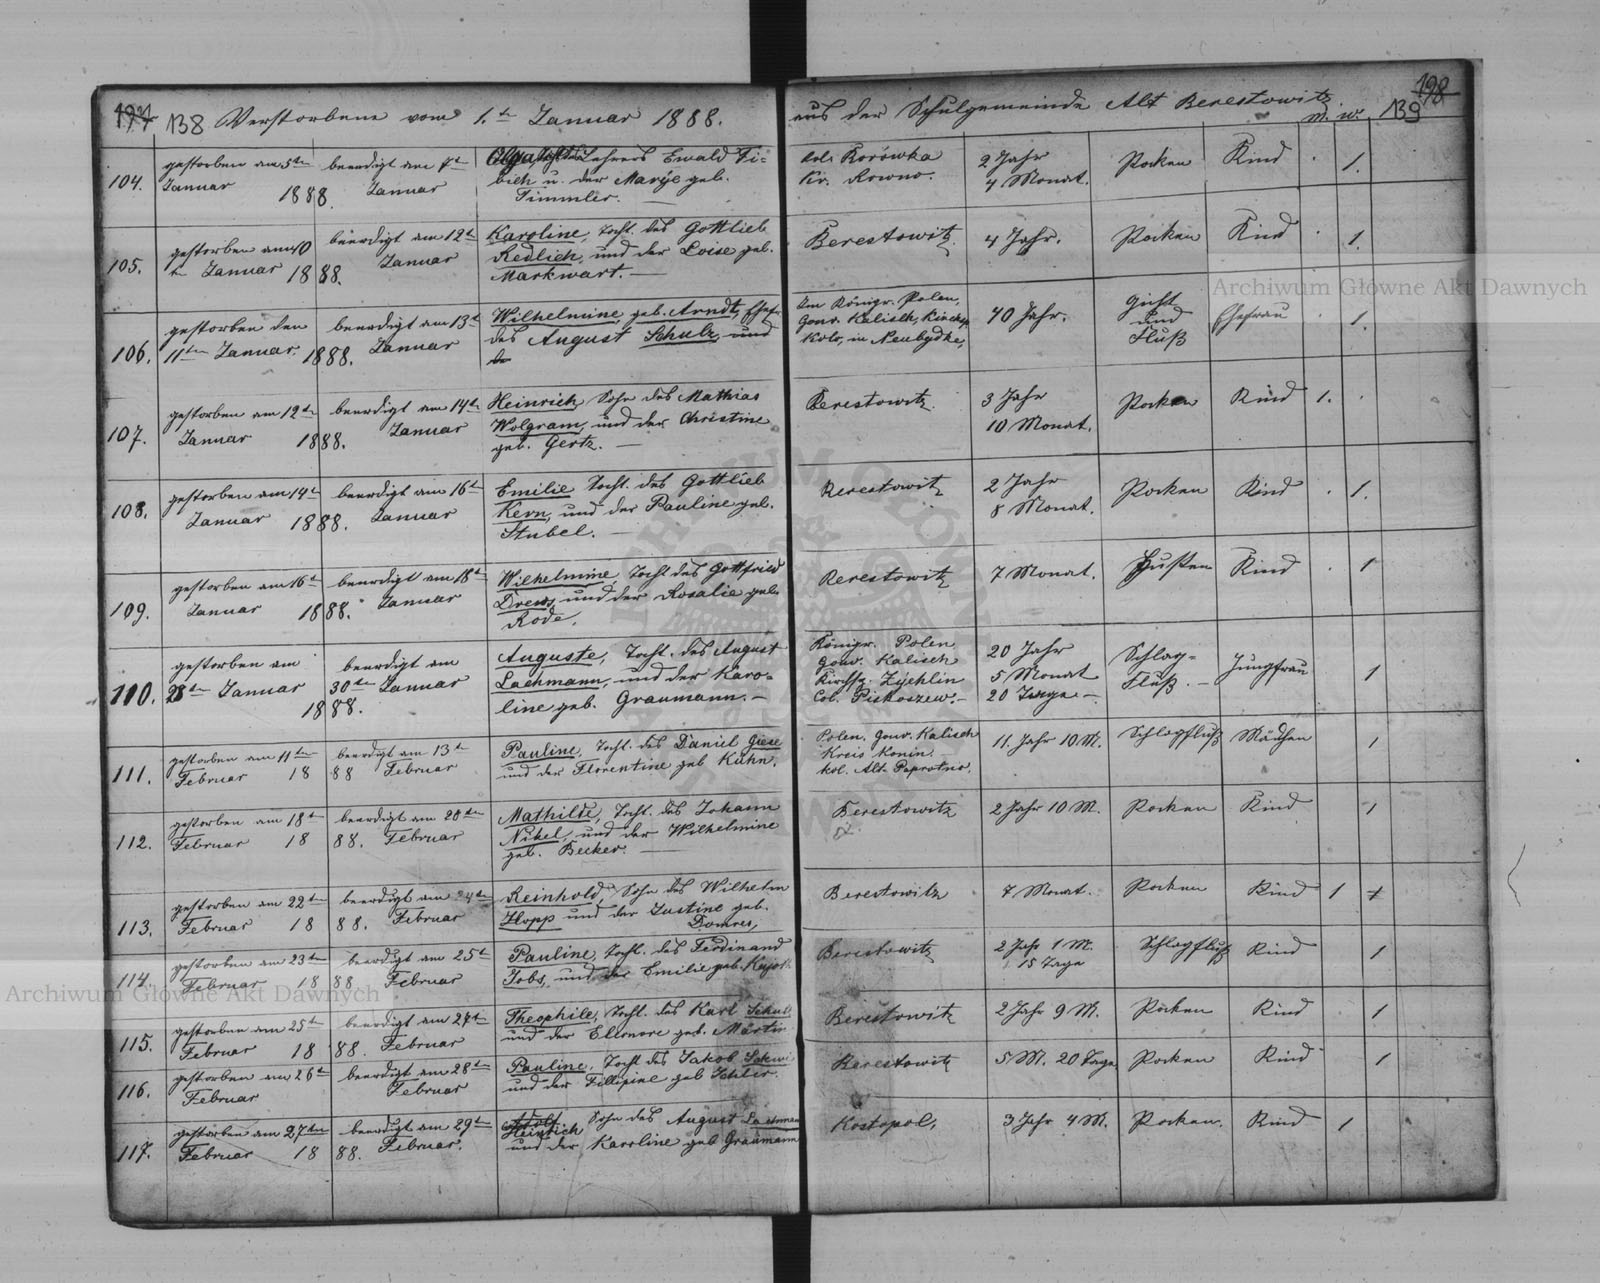 197 138 Verstorbene vom 1.ten Januar 1888.
aus der Schulgemeinde Alt Berestowitz
198
m. w. 139
104.
gestorben am 5ten
Januar 1888.
beerdigt am 7t
Januar
Olga Tocht. des Lehrers Ewald Fi-
bich u. der Marije geb.
Timmler.
Col. Borówka
Kr. Rowno.
2 Jahr
4 Monat.
Pocken
Kind
1.
105.
gestorben am 10
tn Januar 1888.
beerdigt am 12ten
Januar
Karoline, Tocht. des Gottlieb
Redlich, und der Loise geb.
Markwart.
Berestowitz
4 Jahr.
Pocken
Kind
1.
106.
gestorben den
11ten Januar 1888.
beerdigt am 13t
Januar
Wilhelmine, geb. Arndt, Ehefr.
des August Schulz, und
Im Königr. Polen,
Gouv. Kalisch, Kirchsp.
Kolo, in Neubydke,
40 Jahr.
Gicht
und
Fluß
Ehefrau
1.
107.
gestorben am 12ten
Januar 1888.
beerdigt am 14ten
Januar
Heinrich, Sohn des Mathias
Wolgram, und der Christine
geb. Gertz.
Berestowitz
3 Jahr
10 Monat.
Pocken
Kind
1.
108.
gestorben am 14t
Januar 1888.
beerdigt am 16t
Januar
Emilie Tocht. des Gottlieb
Kern, und der Pauline geb.
Stubel.
Berestowitz
2 Jahr
8 Monat.
Pocken
Kind
1.
109.
gestorben am 16t
Januar 1888.
beerdigt am 18t
Januar
Wilhelmine, Tocht des Gottfried
Drews, und der Rosalie geb.
Rode.
Berestowitz
7 Monat.
Husten
Kind
1
110.
gestorben am
28ten Januar
1888.
beerdigt am
30ten Januar
Auguste, Tocht. des August
Lachmann, und der Karo-
line geb. Graumann.
Königr. Polen
Gouv. Kalisch
Kirchsp. Zychlin
Col. Piskoszew.
20 Jahr
5 Monat
20 Tage
Schlag-
Fluß.
Jungfrau
1
111.
gestorben am 11ten
Februar 1888
beerdigt am 13ten
Februar
Pauline, Tocht. des Daniel Giese
und der Florentine geb Kühn.
Polen, Gouv. Kalisch
Kreis Konin.
Kol. Alt Paprotno.
11. Jahr 10. M.
Schlagfluß
Mädchen
1
112.
gestorben am 18t
Februar 1888.
beerdigt am 20ten
Februar
Mathilde, Tocht. des Johann
Nikel, und der Wilhelmine
geb. Becker.
Berestowitz
2 Jahr 10 M.
Pocken
Kind
1
113.
gestorben am 22ten
Februar 1888.
beerdigt am 24ten
Februar
Reinhold, Sohn des Wilhelm
Hopp und der Justine geb.
Domres,
Berestowitz
7 Monat.
Pocken
Kind
1
114.
gestorben am 23ten
Februar 1888
beerdigt am 25t
Februar
Pauline, Tocht. des Ferdinand
Jobs, und der Emilie geb.
Berestowitz
2 Jahr 1 M.
15 Tage
Schlagfluß
Kind
1
115.
gestorben am 25ten
Februar 1888.
beerdigt am 27ten
Februar
Theophile, Tocht. des Karl Schulz
und der Ellenore geb. Martin
Berestowitz
2 Jahr 9 M.
Pocken
Kind
1
116.
gestorben am 26t
Februar
beerdigt am 28ten
Februar
Pauline, Tocht des Jakob
und der Fillipine geb Schler.
Berestowitz
5 M. 20 Tage
Pocken
Kind
1
117.
gestorben am 27ten
Februar 1888.
beerdigt am 29ten
Februar.
Adolf
Heinrich Sohn des August Lachmann
und der Karoline geb Graumann
Kostopol,
3 Jahr 4 M.
Pocken.
Kind
1
Archiwum Główne Akt Dawnych
Archiwum Główne Akt Dawnych